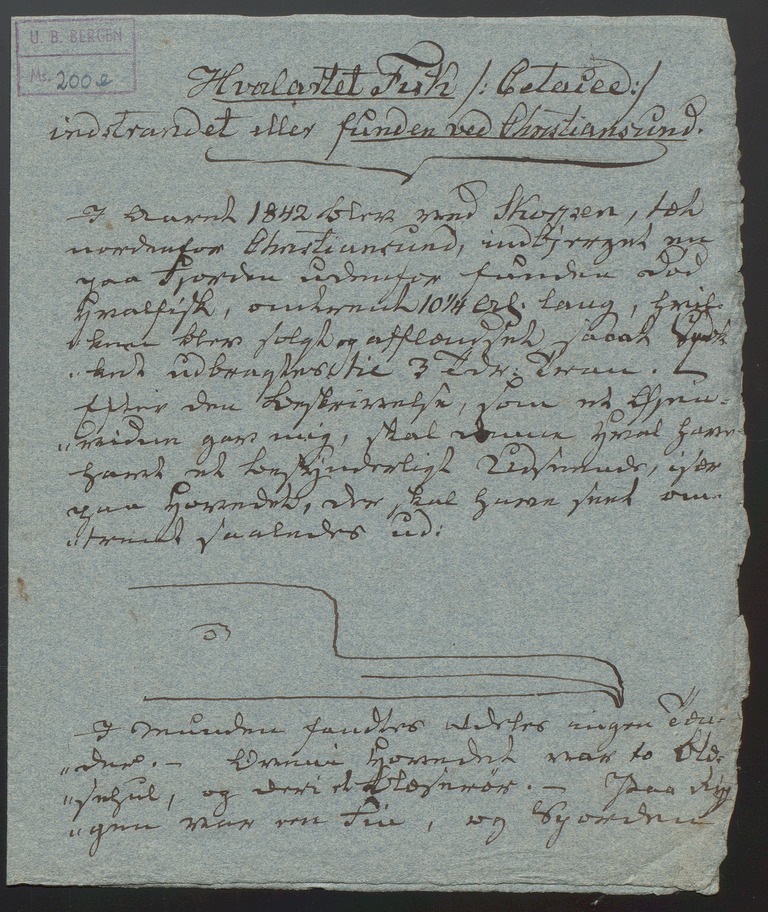 U. B. BERGEN
Ms. 200 e
Hvalartet Fisk /: Cetacee:/
indstrandet eller funden ved Christiansund.
I Aaret 1842 blev ved Skorpen, tæt
nordenfor Christiansund, indbjerget en
paa Fjorden udenfor funden død
Hvalfisk, omtrent 10¼ Al. lang, hvil-
"ken blev solgt og afflændset saaat Spæk-
"ket udbragtes til 3 Tdr. Tran.
Efter den Beskrivelse, som et Øjen-
"vidne gav mig, skal denne Hval have
havt et besynderligt Udseende, især
paa Hovedet, der skal have seet om-
"trent saaledes ud:
I Munden fandtes aldeles ingen Tæn-
"der. – Oveni Hovedet var to Blæ-
"sehul, og deri et Blæserør. – Paa Ryg-
"gen var en Fin, og Sporden